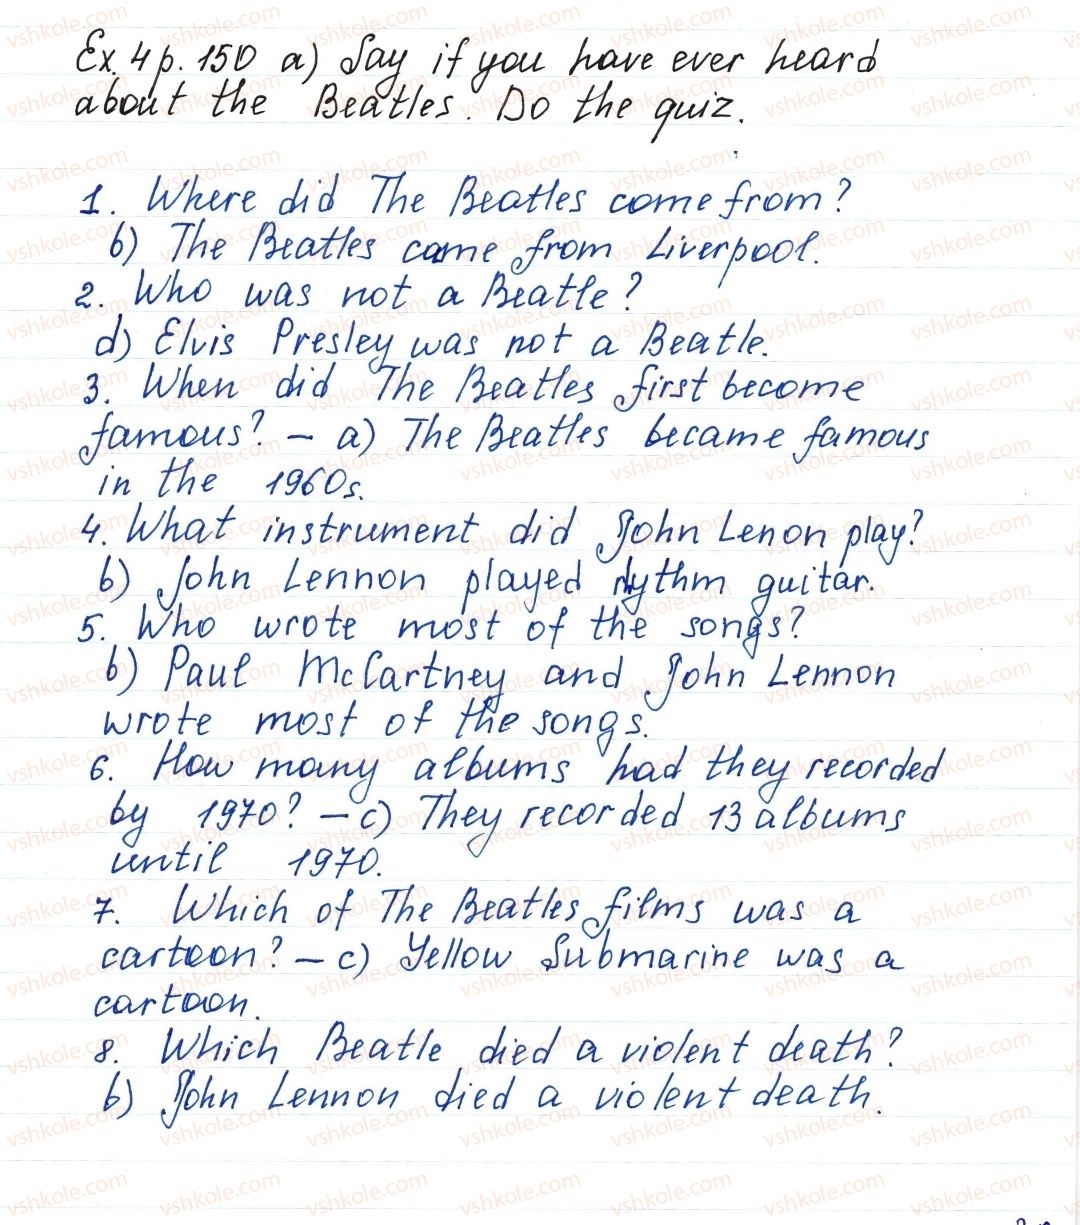 Ex. 4 p. 150 a) Say if you have ever heard
about the Beatles. Do the quiz.
1. Where did The Beatles come from?
b) The Beatles came from Liverpool.
2. Who was not a Beatle?
d) Elvis Presley was not a Beatle.
3. When did The Beatles first become
famous? – a) The Beatles became famous
in the 1960s.
4. What instrument did John Lenon play?
b) John Lennon played rhythm guitar.
5. Who wrote most of the songs?
b) Paul McCartney and John Lennon
wrote most of the songs.
6. How many albums had they recorded
by 1970? – c) They recorded 13 albums
until 1970.
7. Which of The Beatles films was a
cartoon? – c) Yellow Submarine was a
cartoon.
8. Which Beatle died a violent death?
b) John Lennon died a violent death.